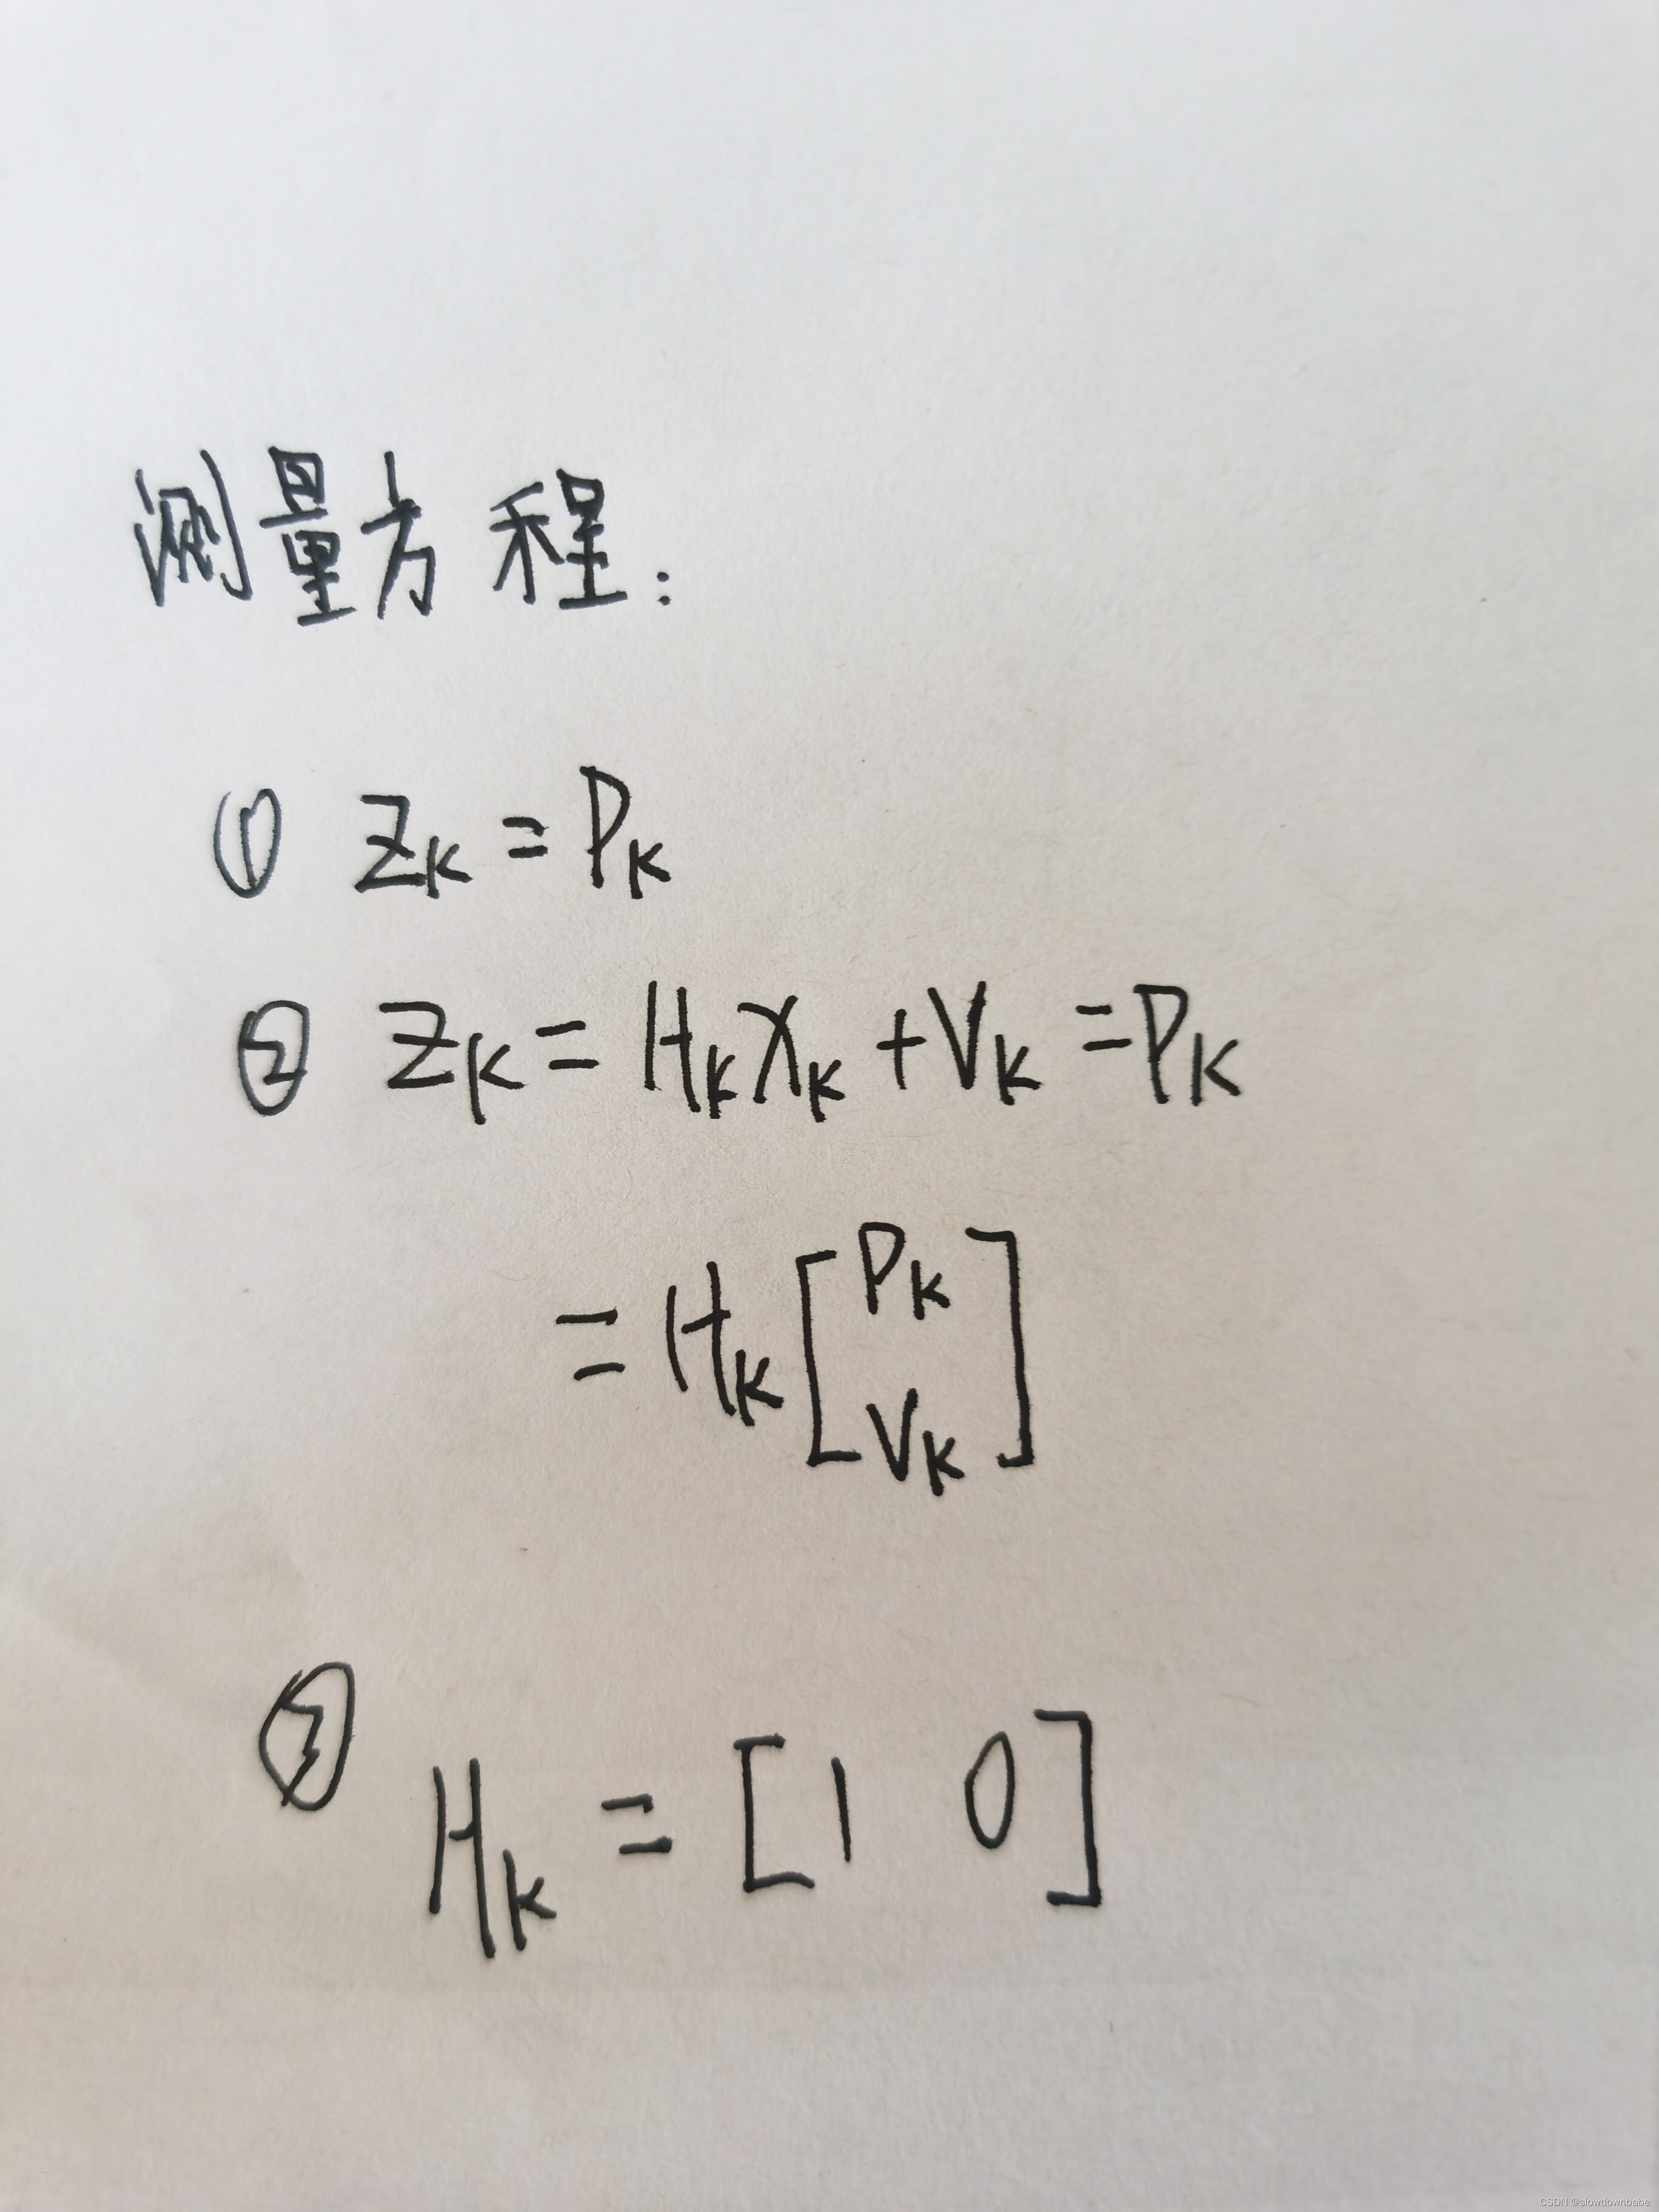 测量方程:
① Zk = Pk
② Zk = HkXk + Vk = Pk
= Hk [Pk
Vk]
③ Hk = [1 0]
CSDN @slowdownbabe